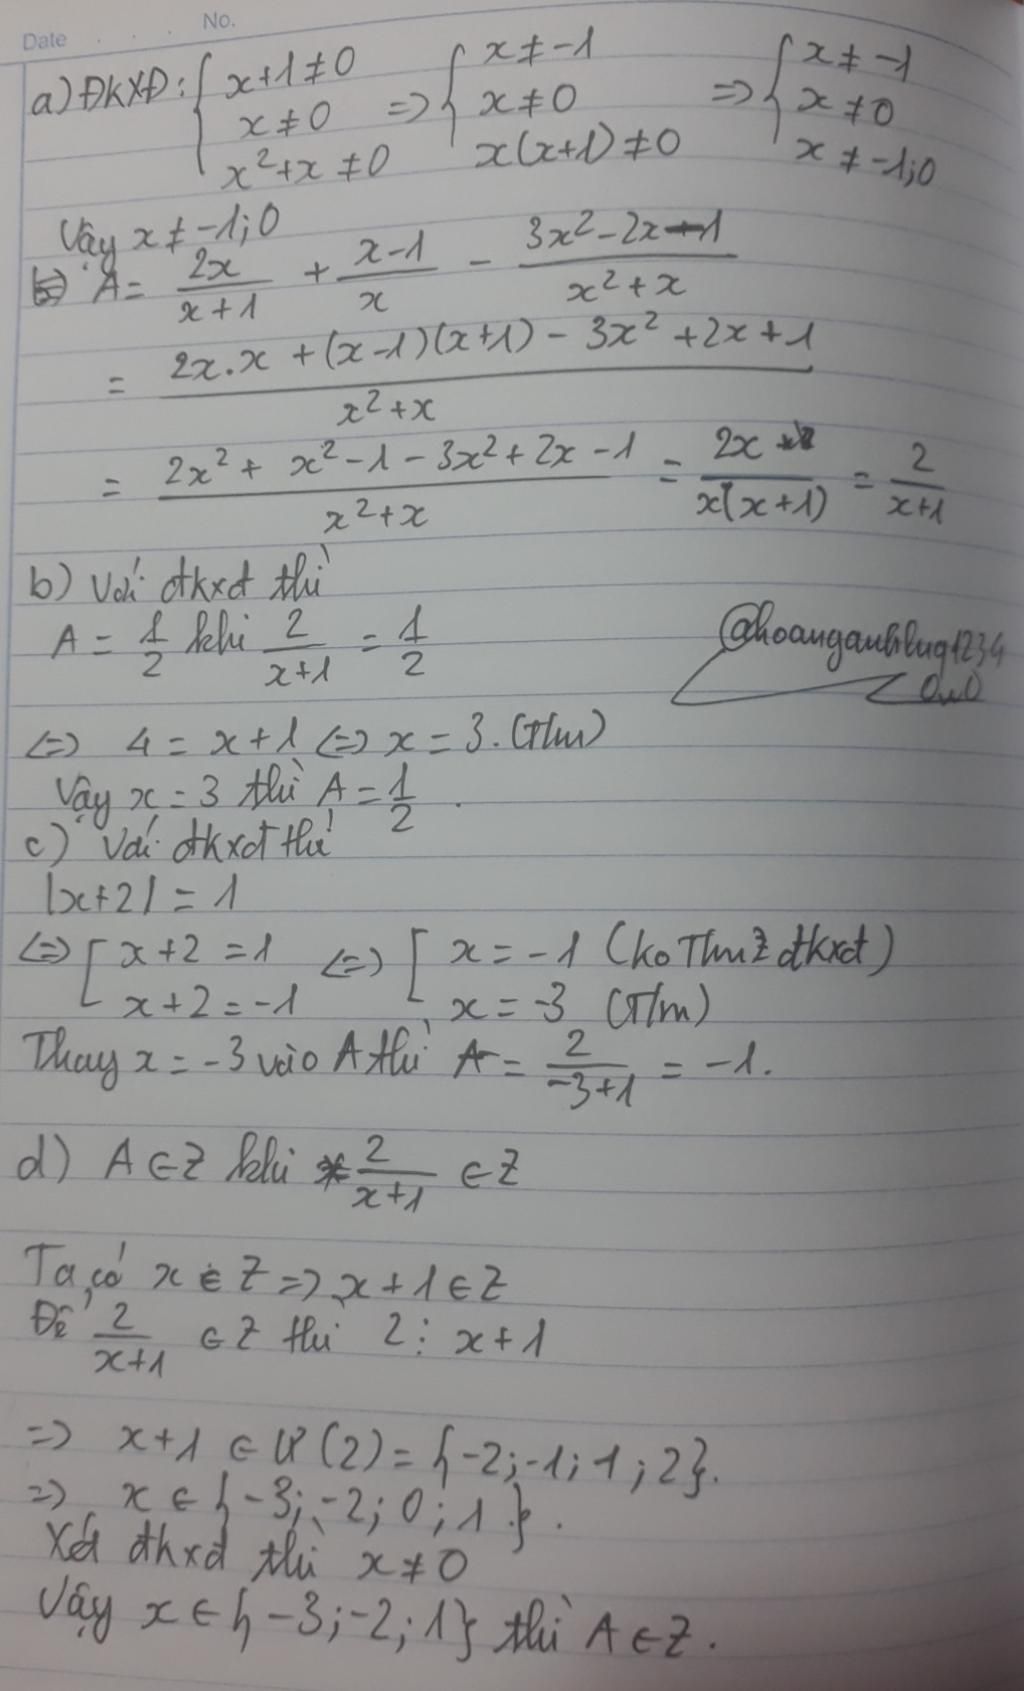 Date . . . No.
a) ĐKXĐ: { x+1≠0 ; x≠0 ; x²+x ≠0 => { x≠-1 ; x≠0 ; x(x+1)≠0 => { x≠-1 ; x≠0 ; x≠-1;0
Vậy x≠-1;0
A = 2x/(x+1) + (x-1)/x - (3x²-2x-1)/(x²+x)
= (2x.x + (x-1)(x+1) - 3x² + 2x + 1)/(x²+x)
= (2x² + x² - 1 - 3x² + 2x - 1)/(x²+x) = 2x/(x(x+1)) = 2/(x+1)
b) Với đkxđ thì
A = 1/2 khi 2/(x+1) = 1/2
@hoanganhlug1234
OwO
<=> 4 = x+1 <=> x = 3. (T/m)
Vậy x = 3 thì A = 1/2 .
c) Với đkxđ thì
|x+2| = 1
<=> [ x+2 = 1 ; x+2 = -1 <=> [ x = -1 (ko Thm đkxđ) ; x = -3 (T/m)
Thay x = -3 vào A thì A = 2/(-3+1) = -1.
d) A ∈ Z khi 2/(x+1) ∈ Z
Ta có x ∈ Z => x+1 ∈ Z
Để 2/(x+1) ∈ Z thì 2 ⋮ x+1
=> x+1 ∈ Ư(2) = {-2;-1;1;2}.
=> x ∈ {-3;-2;0;1}.
Xét đkxđ thì x≠0
Vậy x ∈ {-3;-2;1} thì A ∈ Z.